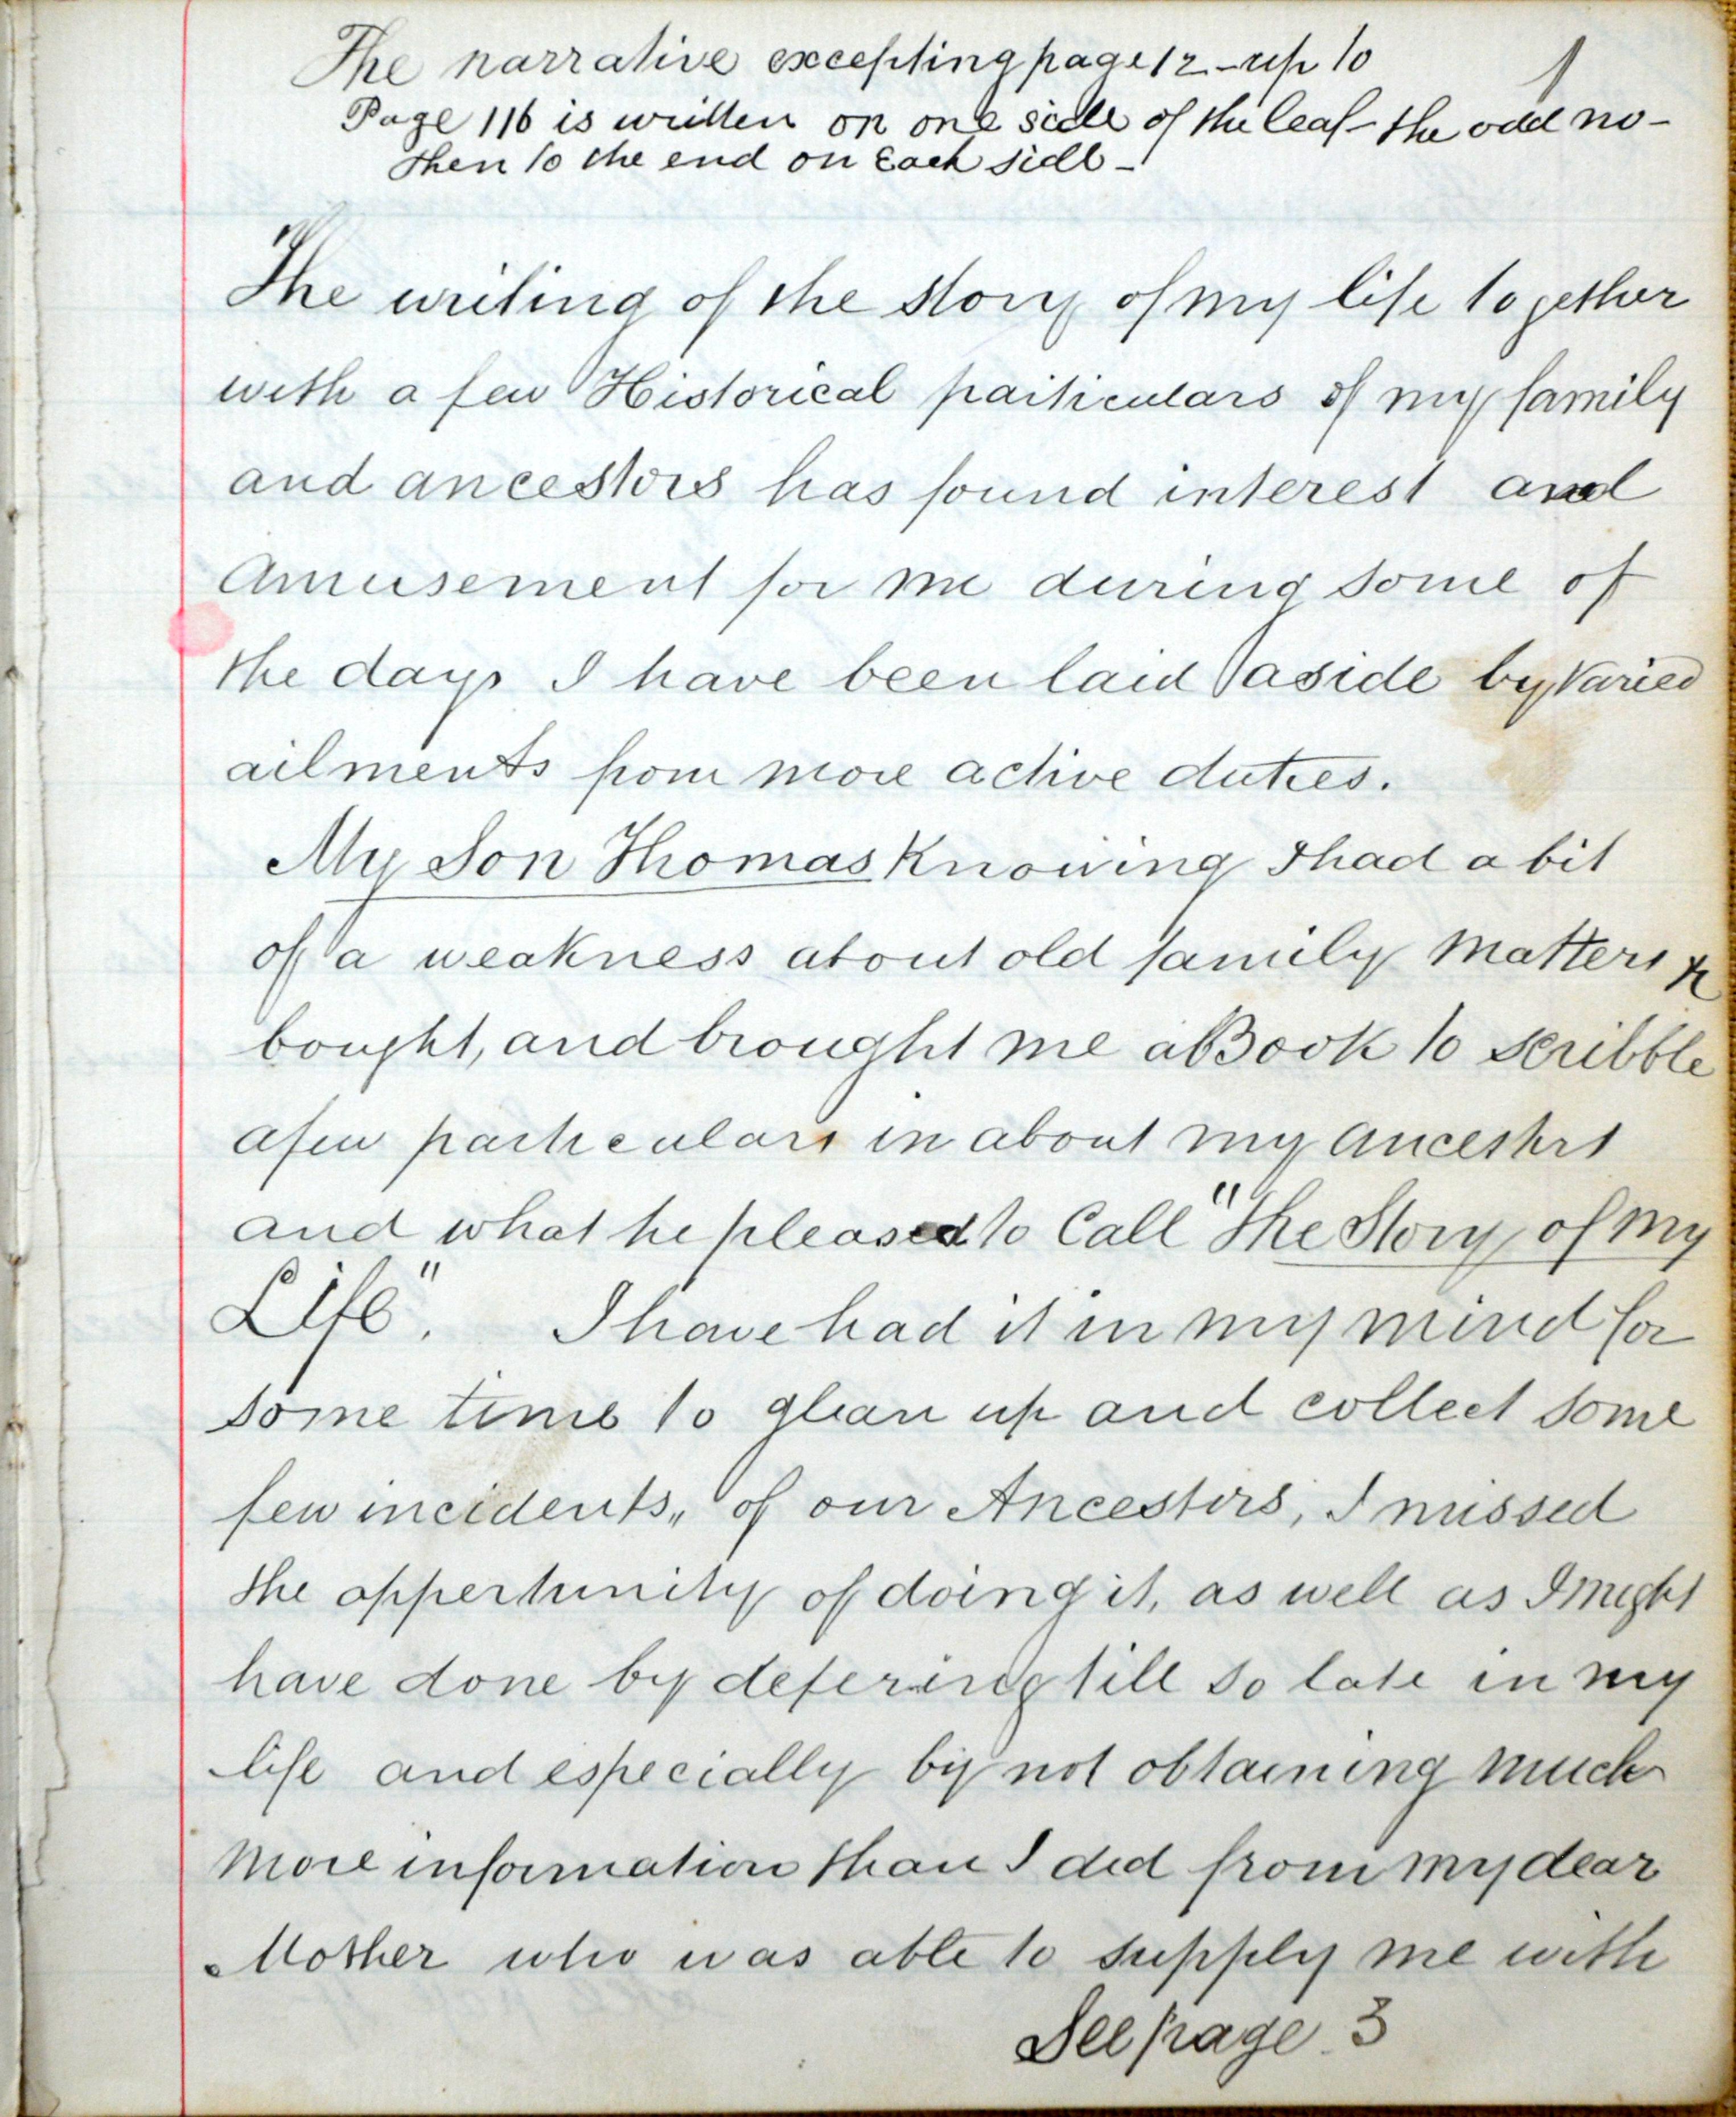 The narrative excepting page 12 - up to
1
Page 116 is written on one side of the leaf - the odd no -
then to the end on Each side -
The writing of the story of my life together
with a few Historical particulars of my family
and ancestors has found interest and
Amusement for me during some of
the days I have been laid aside by varied
ailments from more active duties.
My Son Thomas Knowing I had a bit
of a weakness about old family Matters &
bought, and brought me a Book to scribble
a few particulars in about my Ancestors
and what he pleased to Call "The Story of my
Life". I have had it in my mind for
some time to glean up and collect some
few incidents,, of our Ancestors, I missed
the oppertunity of doing it, as well as I might
have done by defering till so late in my
life and especially by not obtaining much
More information than I did from my dear
Mother who was able to supply me with
See page 3